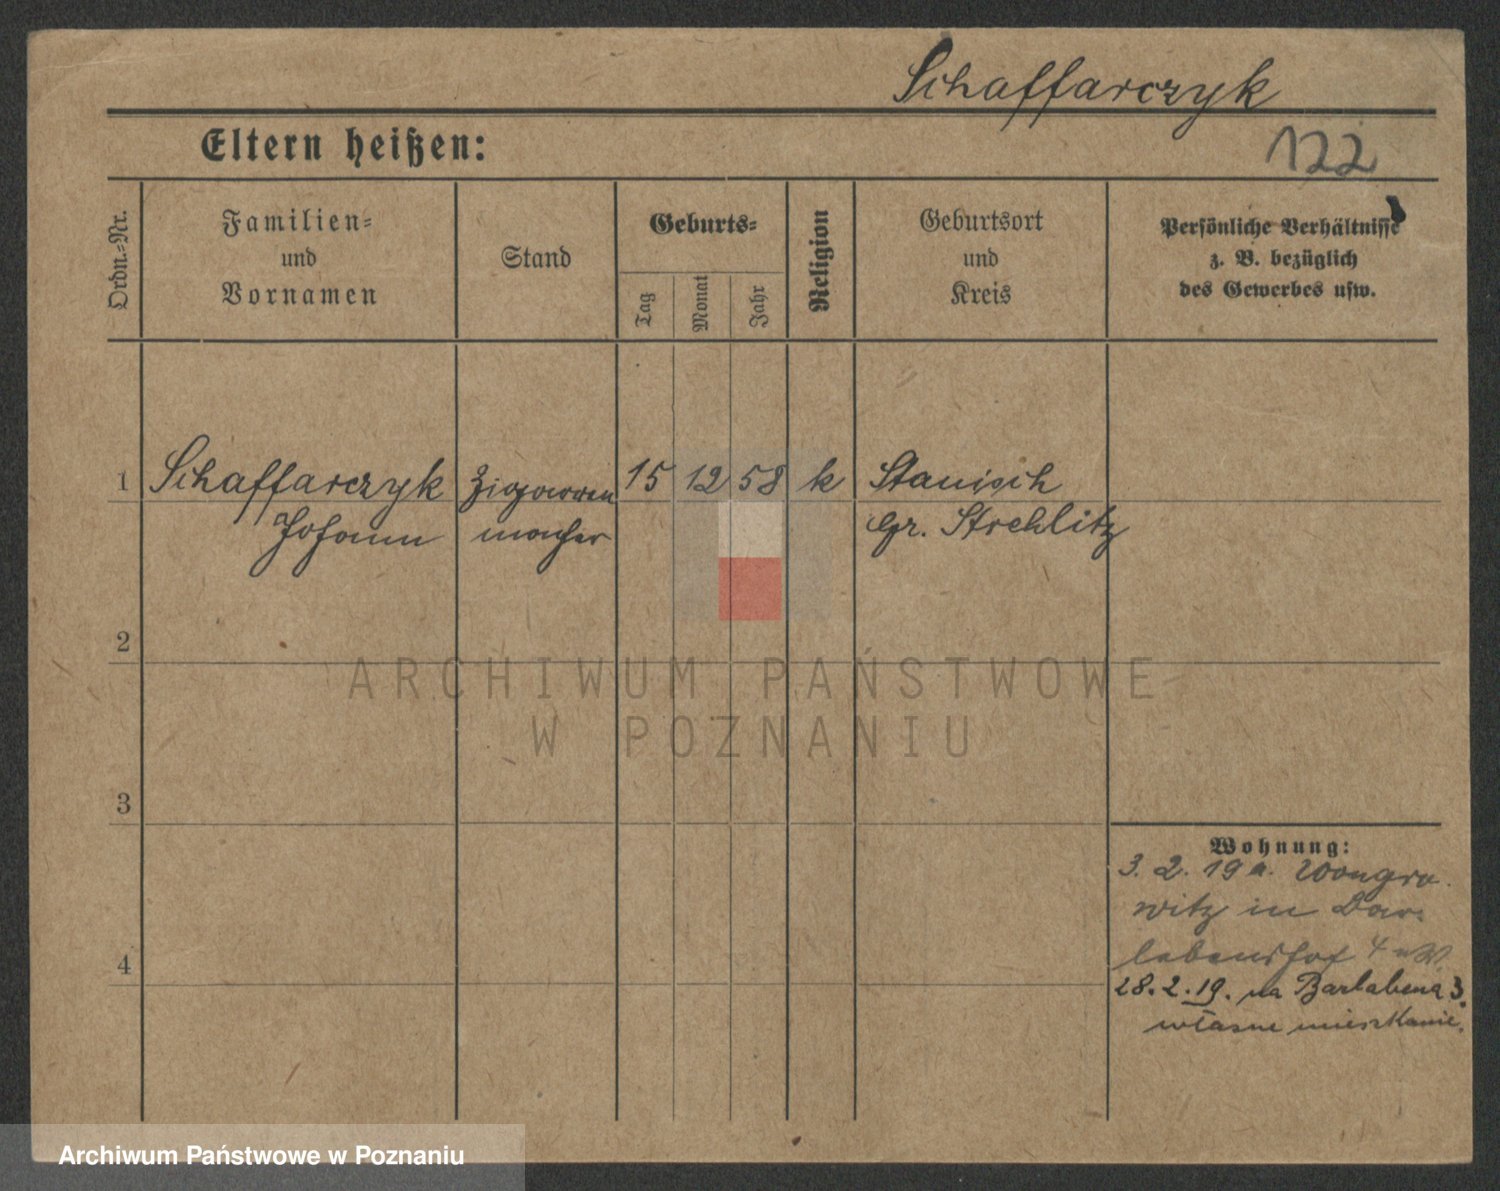 Schaffarczyk
Eltern heißen:
122
Ordn.-Nr.
Familien-
und
Vornamen
Stand
Geburts-
Tag
Monat
Jahr
Religion
Geburtsort
und
Kreis
Persönliche Verhältnisse
z. B. bezüglich
des Gewerbes usw.
1 Schaffarczyk Zigarren 15 12 58 k Stanisch
Johann macher Gr. Strehlitz
2
ARCHIWUM PAŃSTWOWE
W POZNANIU
3
Wohnung:
3. 2. 19 a. Wongro
witz in Bar
lebenshof 4
4
28. 2. 19. na Barlabena 3.
własne mieszkanie.
Archiwum Państwowe w Poznaniu